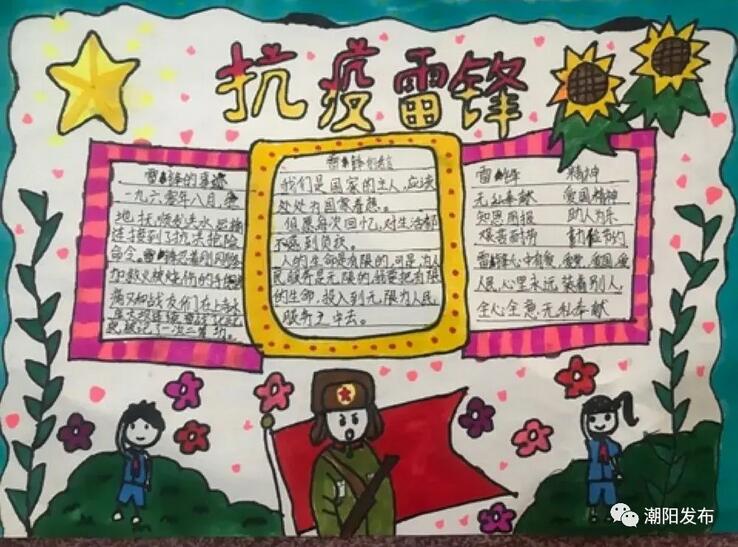 抗疫雷锋
雷锋的事迹
一九六零年八月，
地抚顺发洪水，运输
连接到了抗洪抢险
命令。雷锋忍着刚刚
加救火被烧伤的手
痛又和战友们在上寺水
记了一次二等功。
雷锋的名言
我们是国家的主人，应该
处处为国家着想。
但愿每次回忆，对生活都
不感到负疚。
人的生命是有限的，可是，为人
民服务是无限的，我要把有限
的生命，投入到无限为人民
服务之中去。
雷锋 精神
无私奉献 爱国精神
知恩图报 助人为乐
艰苦耐劳 勤俭节约
雷锋心中有爱，爱党，爱国，爱
人民，心里永远装着别人，
全心全意，无私奉献
潮阳发布